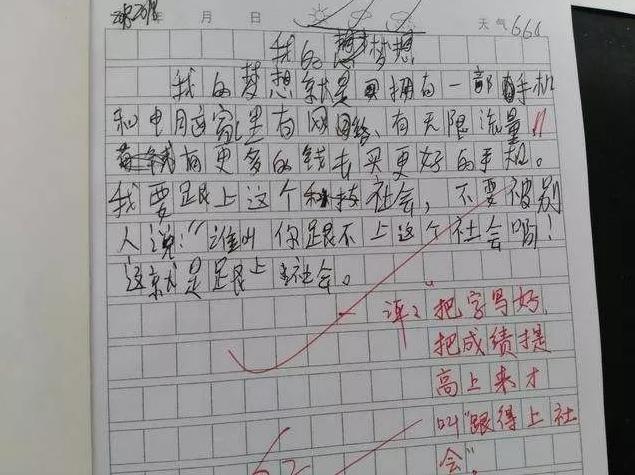 年 月 日 天气 666
我的梦想
我的梦想就是拥有一部手机
和电脑这家里有网络、有无限流量!!
有更多的钱去买更好的手机。
我要跟上这个科技社会，不要被别
人说：“谁叫你跟不上这个社会啊！
这就是跟上社会。”
评：把字写好，
把成绩提
高上来才
叫“跟得上社
会”